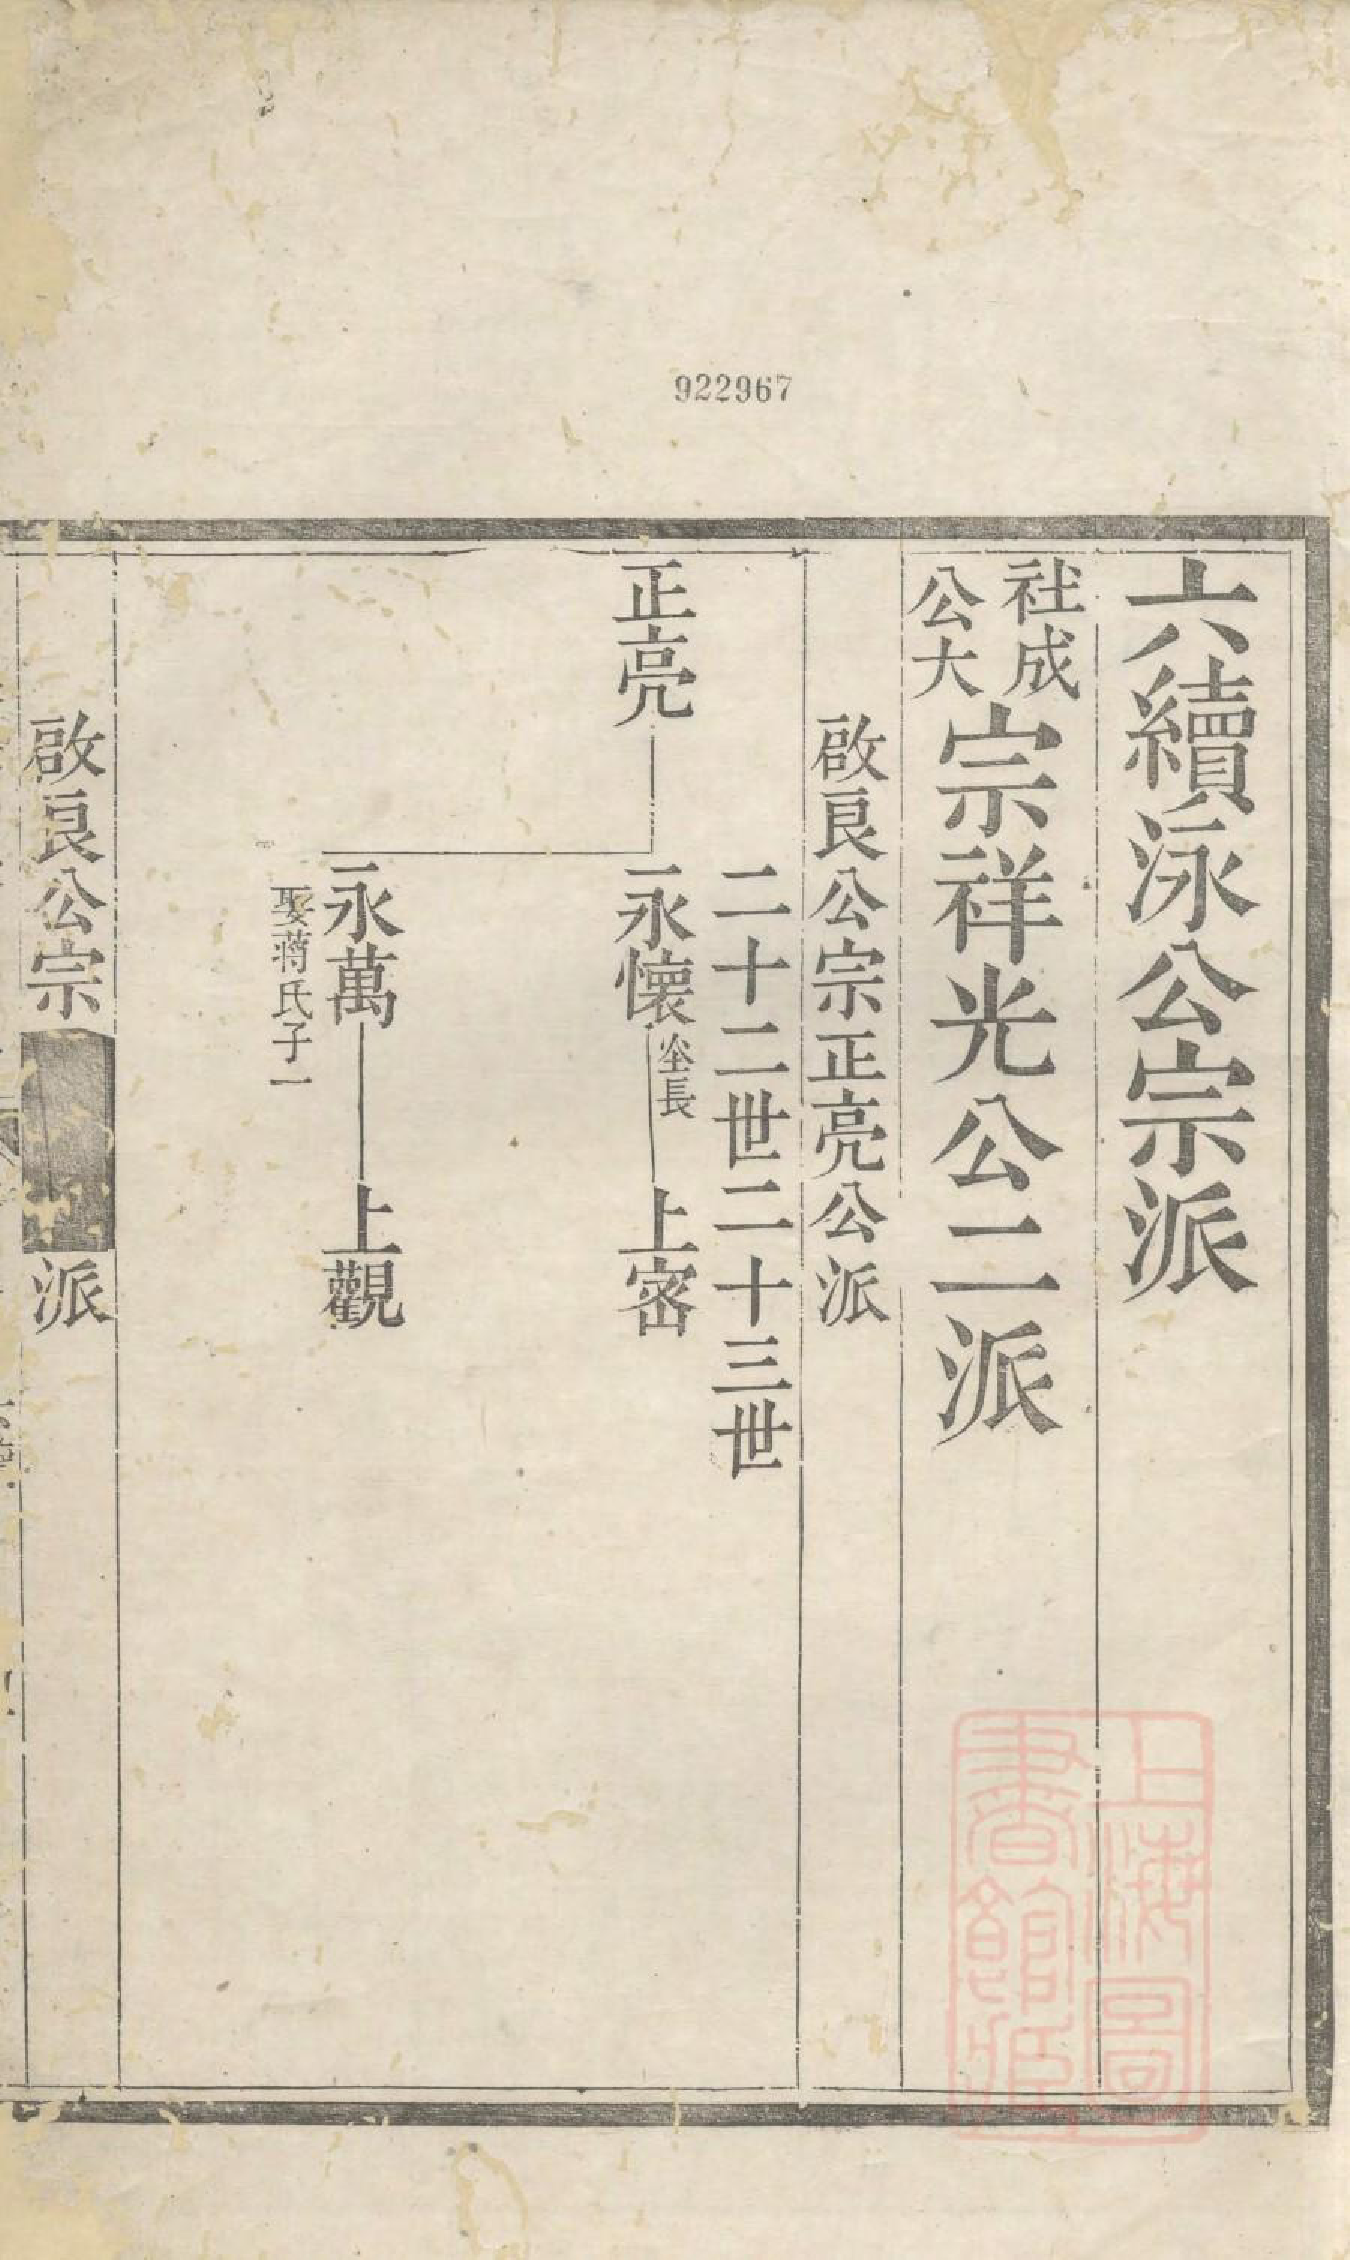 922967
六續泳公宗派
社成
公大
宗祥光公二派
啟良公宗正亮公派
二十二世二十三世
正亮
永懷
上密
永萬
上觀
娶蔣氏子一
啟良公宗
派
上海圖
書館藏